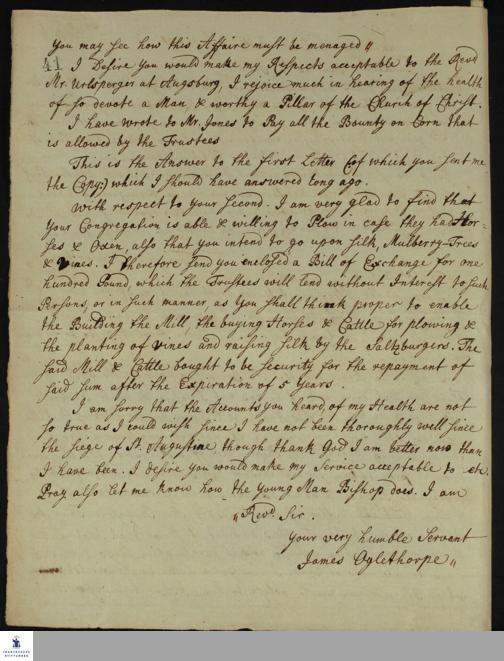 You may see how this Affaire must be menaged "
41
I Desire you would make my Respects acceptable to the Revd
Mr. Urlsperger at Augsburg, I rejoice much in hearing of the health
of so devote a Man, & worthy a Pillar of the Church of Christ.
I have wrote to Mr. Jones to Pay all the Bounty on Corn that
is allowed by the Trustees
This is the Answer to the first Letter (of which you sent me
the Copy:) which I should have answered long ago.
With respect to your Second. I am very glad to find that
Your Congregation is able & willing to Plow in case they had Hor-
ses & Oxen, also that you intend to go upon Silk, Mulberry-Trees
& Vines. I Therefore send you enclosed a Bill of Exchange for one
hundred Pound, which the Trustees will lend without Interest to such
Persons, or in such manner, as You shall think proper to enable
the Building the Mill, the buying Horses & Cattle for plowing &
the planting of Vines and raising Silk by the Saltzburgers. The
said Mill & Cattle bought to be security for the repayment of
said Sum after the Expiration of 5 Years.
I am sorry that the Accounts you heard of my Health are not
so true as I could wish since I have not been thoroughly well since
the Siege of St. Augustine though thank God I am better now than
I have been. I desire you would make my Service acceptable to etc.
Pray also let me know how the Young Man Bishop does. I am
"Revd. Sir.
Your very humble Servant
James Oglethorpe "
FRANCKESCHE
STIFTUNGEN